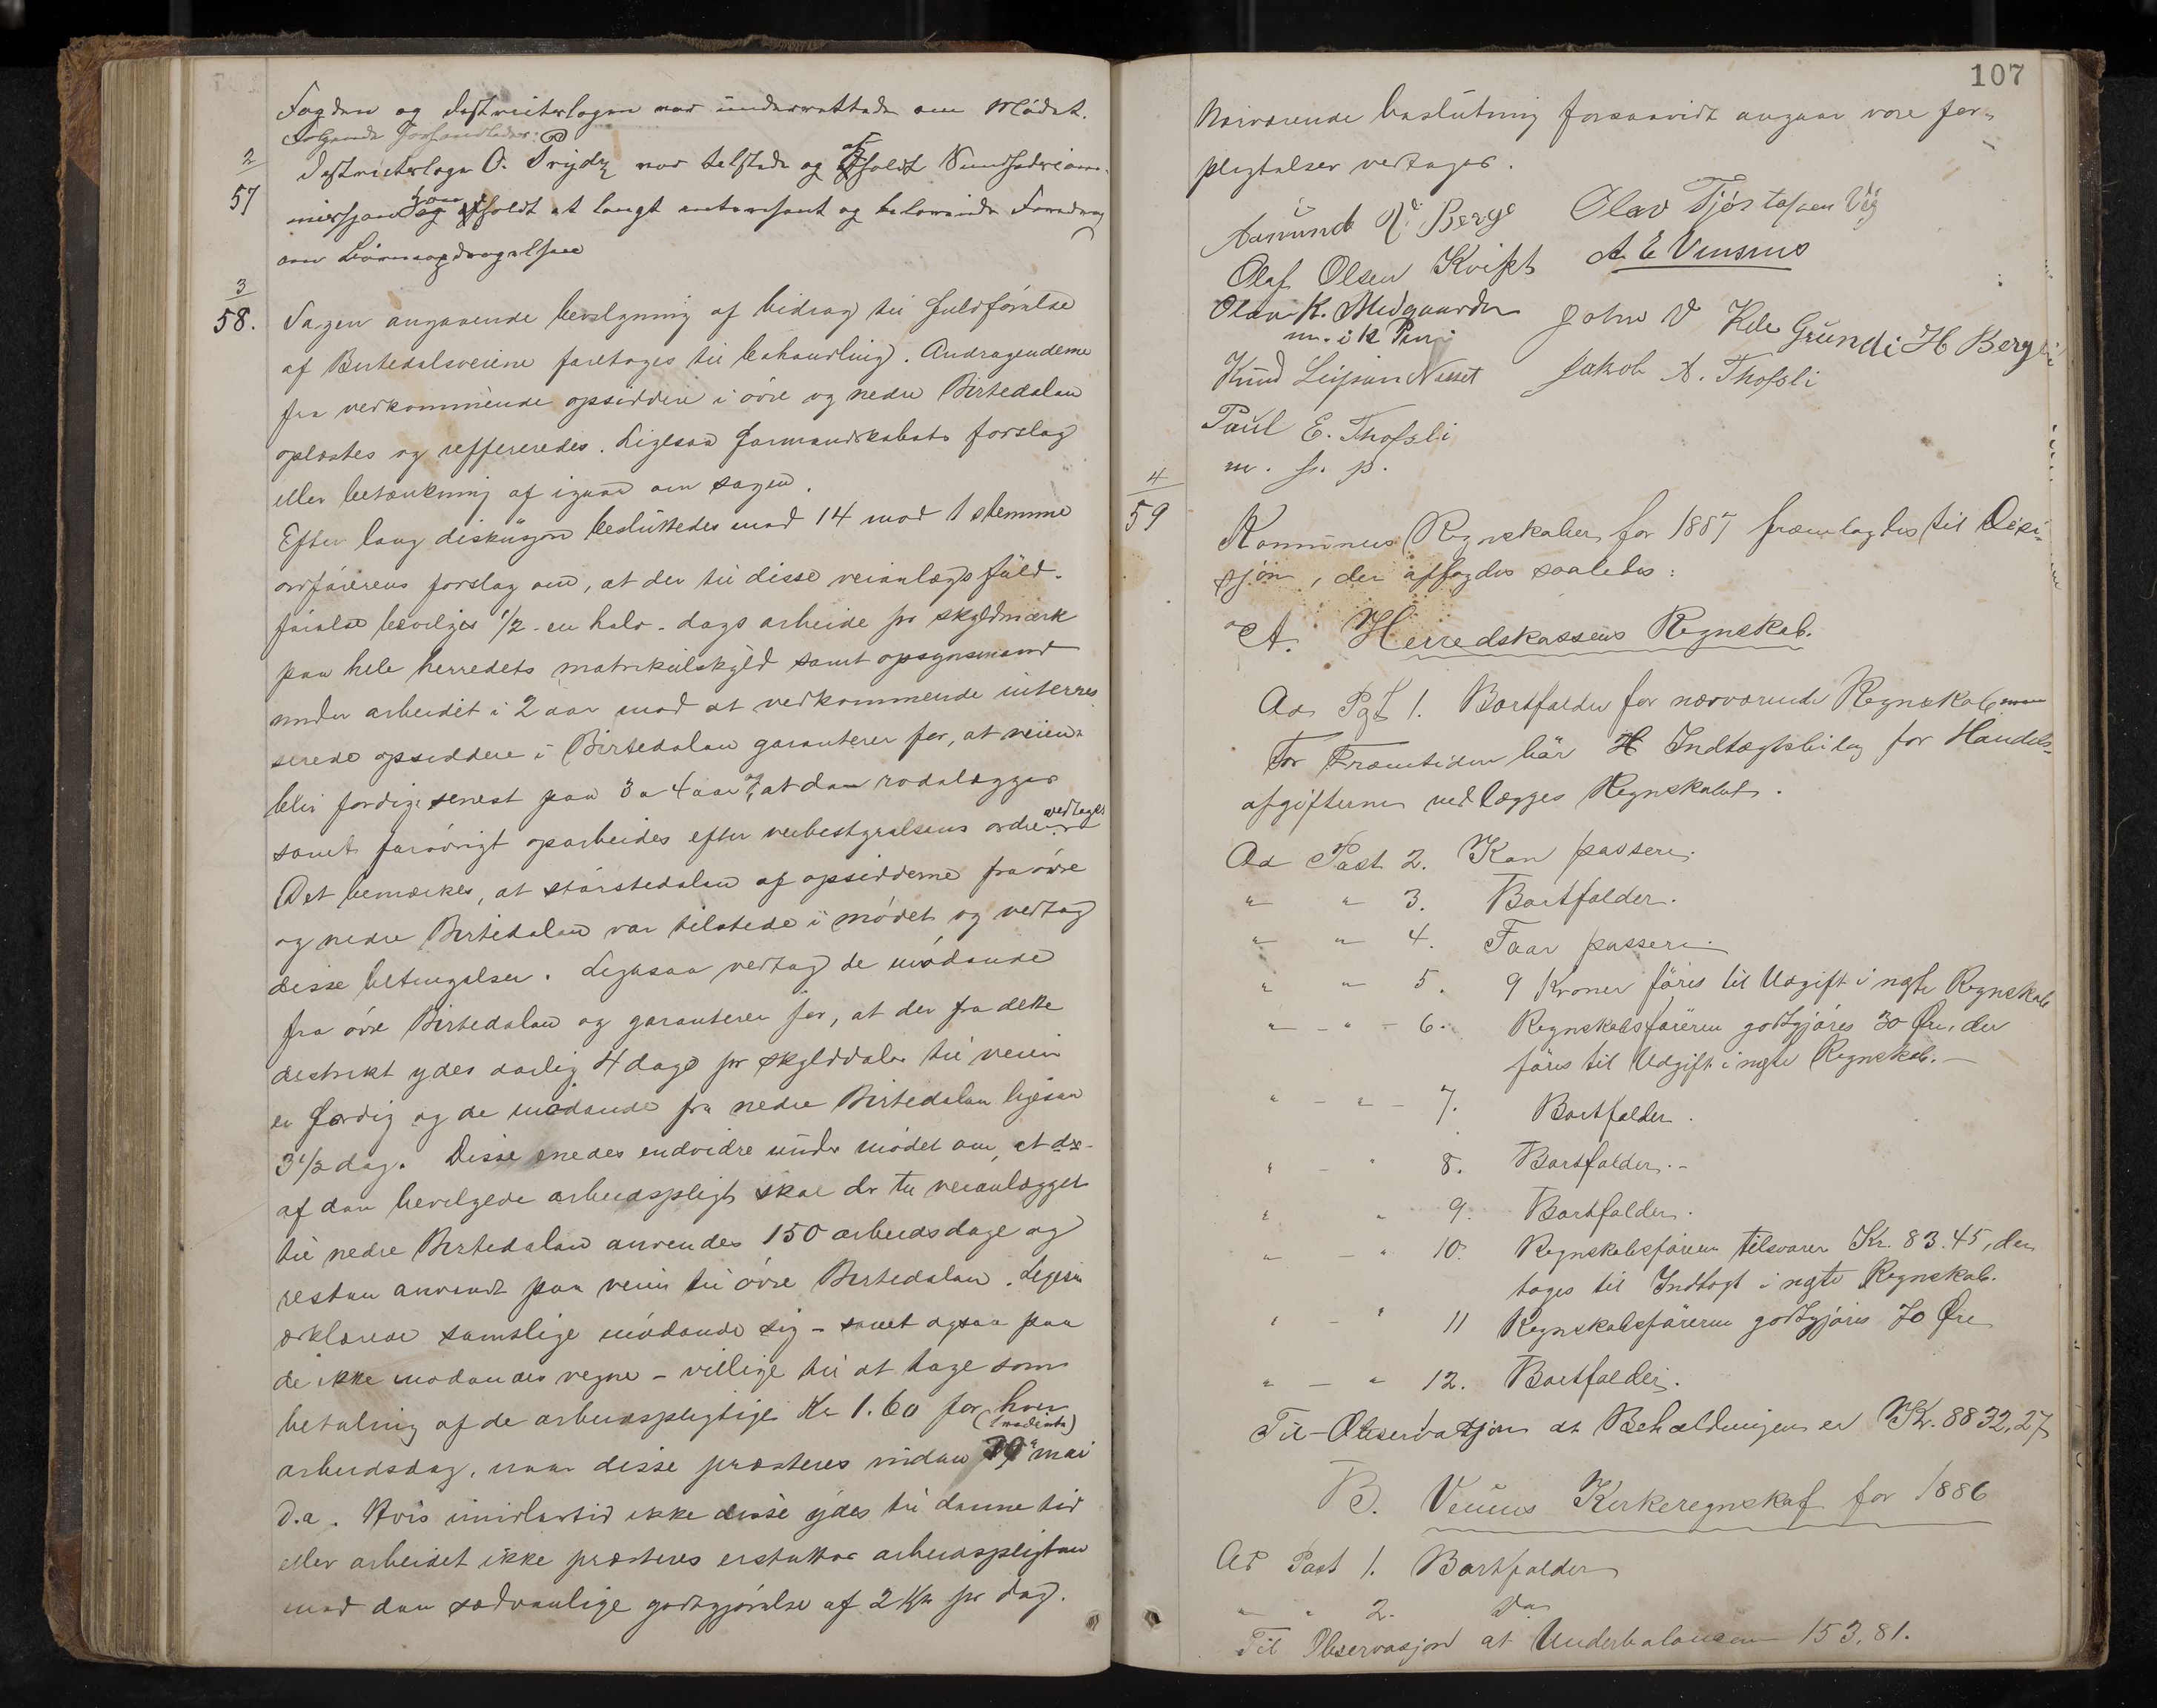 Fogden og Distrietslægen var underrettede om Mødet.
Følgende Forhandleder:
2/57 Distrietslæge O. Trydz var tilstede og afholdt Sundheds
og holdt et langt interessant og belærende Foredrag
om
3/58. Sagen angaaende bevilgning af bidrag til fuldförelse
af Birtedalsveiene foretoges til behandling. Andragenderne
fra vedkommende opsiddere i övre og nedre Birtedalen
oplæstes og reffereredes. Ligesaa formandskabets forslag
eller betænkning af igaar om sagen.
Efter lang diskusjon besluttedes med 14 mod 1 stemme
ordförerens forslag om, at der til disse veianlægs fuld-
förelse bevilges 1/2 - en halv - dags arbeide pr skyldmark
paa hele herredets matrikulskyld samt opsynsmand
under arbeidet i 2 aar mod at vedkommende interres-
serede opsiddere i Birtedalen garanterer for, at veien
blir færdig senest paa 3 a 4 aar, at den rodelægges
samt forövrigt oparbeides efter veibestyrelsens ordre vedtages
Det bemærkes, at störstedelen af opsidderne fra övre
og nedre Birtedalen var tilstede i mödet og vedtog
disse betingelser. Ligesaa vedtog de mödende
fra övre Birtedalen og garanterer for, at der fra dette
destrikt ydes aarlig 4 dage pr skylddaler til veien
er færdig og de mödende fra nedre Birtedalen ligesaa
3 1/2 dag. Disse enedes endvidre under mödet om, at der
af den bevilgede arbeidspligt skal der til veianlægget
til nedre Birtedalen anvendes 150 arbeidsdage og
resten anvendt paa veien til övre Birtedalen. Ligesaa
erklærede samtlige mödende sig - samt ogsaa paa
de ikke mödendes vegne - villige til at tage som
betaling af de arbeidspligtige Kr 1.60 for hver
arbeidsdag, naar disse præsteres inden mai
d.a. Hvis imidlertid ikke disse ydes til denne tid
eller arbeidet ikke præsteres erstatter arbeidspligten
med den sædvanlige godtgjörelse af 2 Kr pr dag.
107
Nærværende beslutning forsaavidt angaar vore for-
pligtelser vedtages.
Aasmund Berge Olav Tjöstolsen Vig
Olaf Olsen Kvist A E Vinsnus
Olav K. Midgaarden John V Gundi H Berge
m. i k Pen
Knud Leifsen Nesset Jakob A. Thofsli
Paul E. Thofsli
m. f. p.
4/59 Komunens Regnskaber for 1887 fræmlagdes til Desi-
sjon, der affagdes saaledes:
A. Herredskassens Regnskab.
Ad Pgt 1. Bortfalder for nærværende Regnskab men
For Fræmtiden bör Indtægtsbilag for Handels-
afgifterne vedlægges Regnskabet.
Ad Post 2. Kan passere.
" " 3. Bortfalder.
" " 4. Faar passere.
" " 5. 9 Kroner föris til Udgift i ngte Regnskab
" - " - 6. Regnskabsföreren godtgjöres 30 Øre, der
föris til Udgift i ngte Regnskab. -
" - " - 7. Bortfalder.
" - " 8. Bortfalder. -
" " 9. Bortfalder.
" - " 10. Regnskabsföreren tilsvarer Kr. 83.45, der
tages til Indtægt i ngte Regnskab.
" - " 11 Regnskabsföreren godtgjöris 70 Øre
" - " 12. Bortfalder.
Til Observasjon at Beholdningen er Kr. 8832,27
B. Veums Kirkeregnskab for 1886
Ad Post 1. Bortfalder
" " 2. Do
Til Observasjon at Underbalancen 153.81.